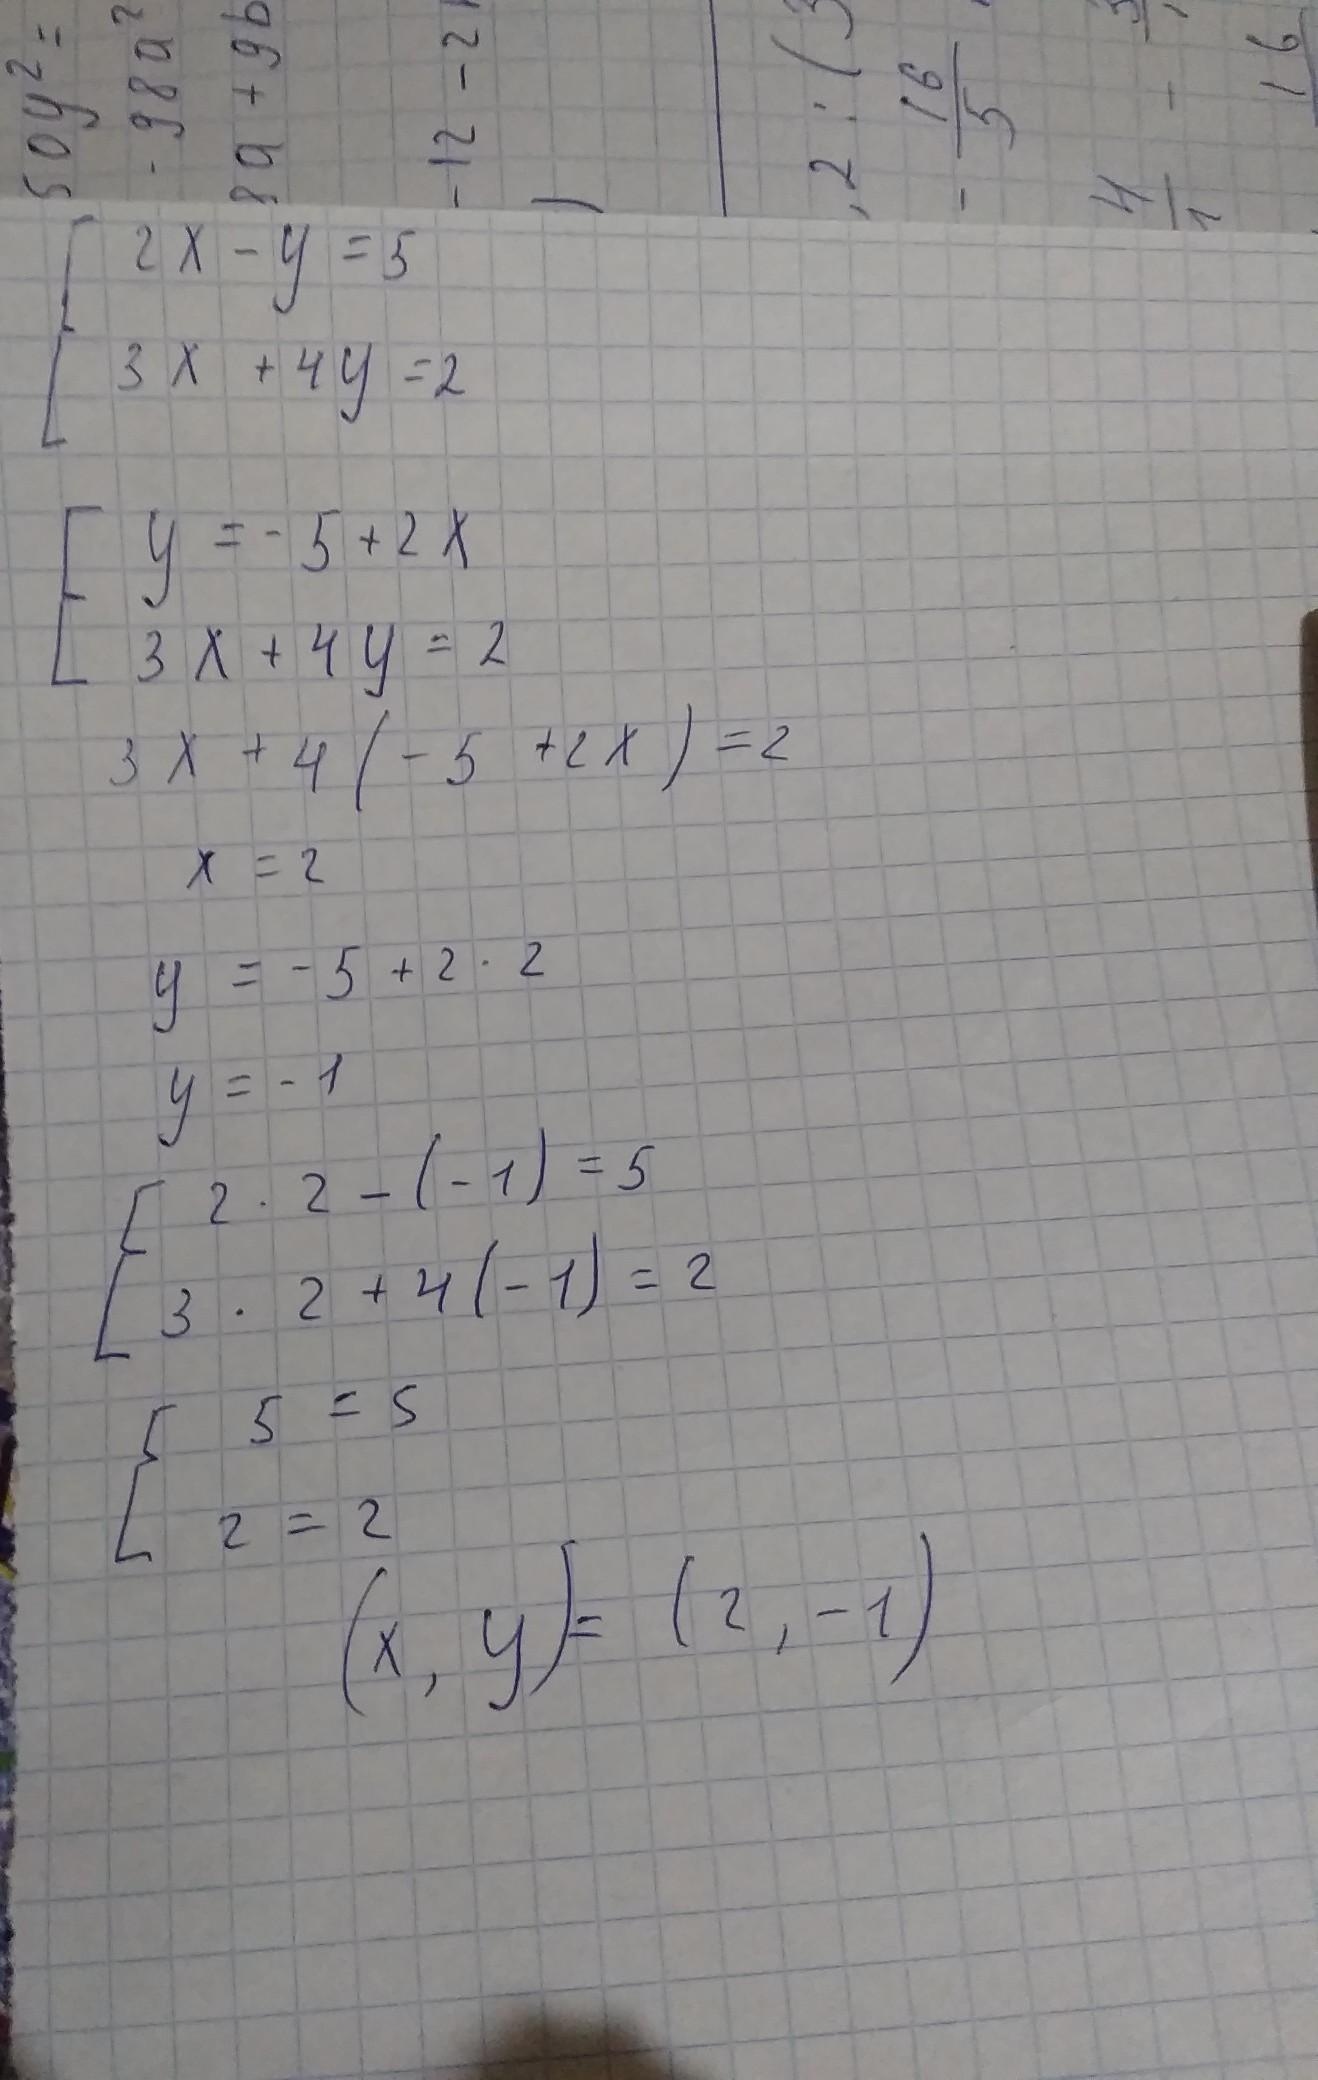 50y² =
- 98a²
8a + 9b
- 12 - 2
, 2 : ( 3
- 16/5
4/1 -
16
2x - y = 5
3x + 4y = 2
y = - 5 + 2x
3x + 4y = 2
3x + 4 ( - 5 + 2x ) = 2
x = 2
y = - 5 + 2 · 2
y = - 1
2 · 2 - ( - 1 ) = 5
3 · 2 + 4 ( - 1 ) = 2
5 = 5
2 = 2
( x , y ) = ( 2 , - 1 )